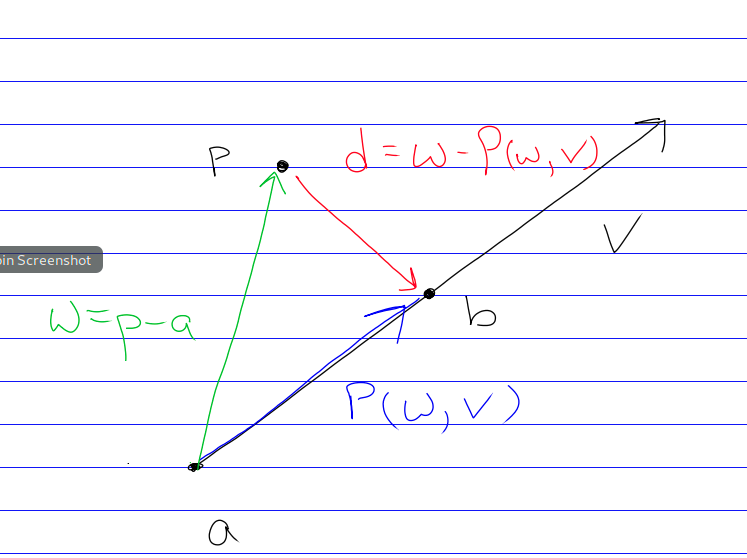 p
d = w - P(w, v)
v
in Screenshot
w = p - a
b
P(w, v)
a